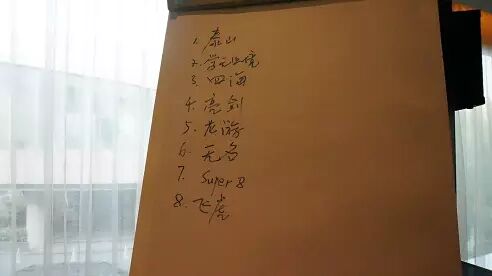 1. 泰山
2. 学无止境
3. 四海
4. 亮剑
5. 老游
6. 无名
7. Super 8
8. 飞虎